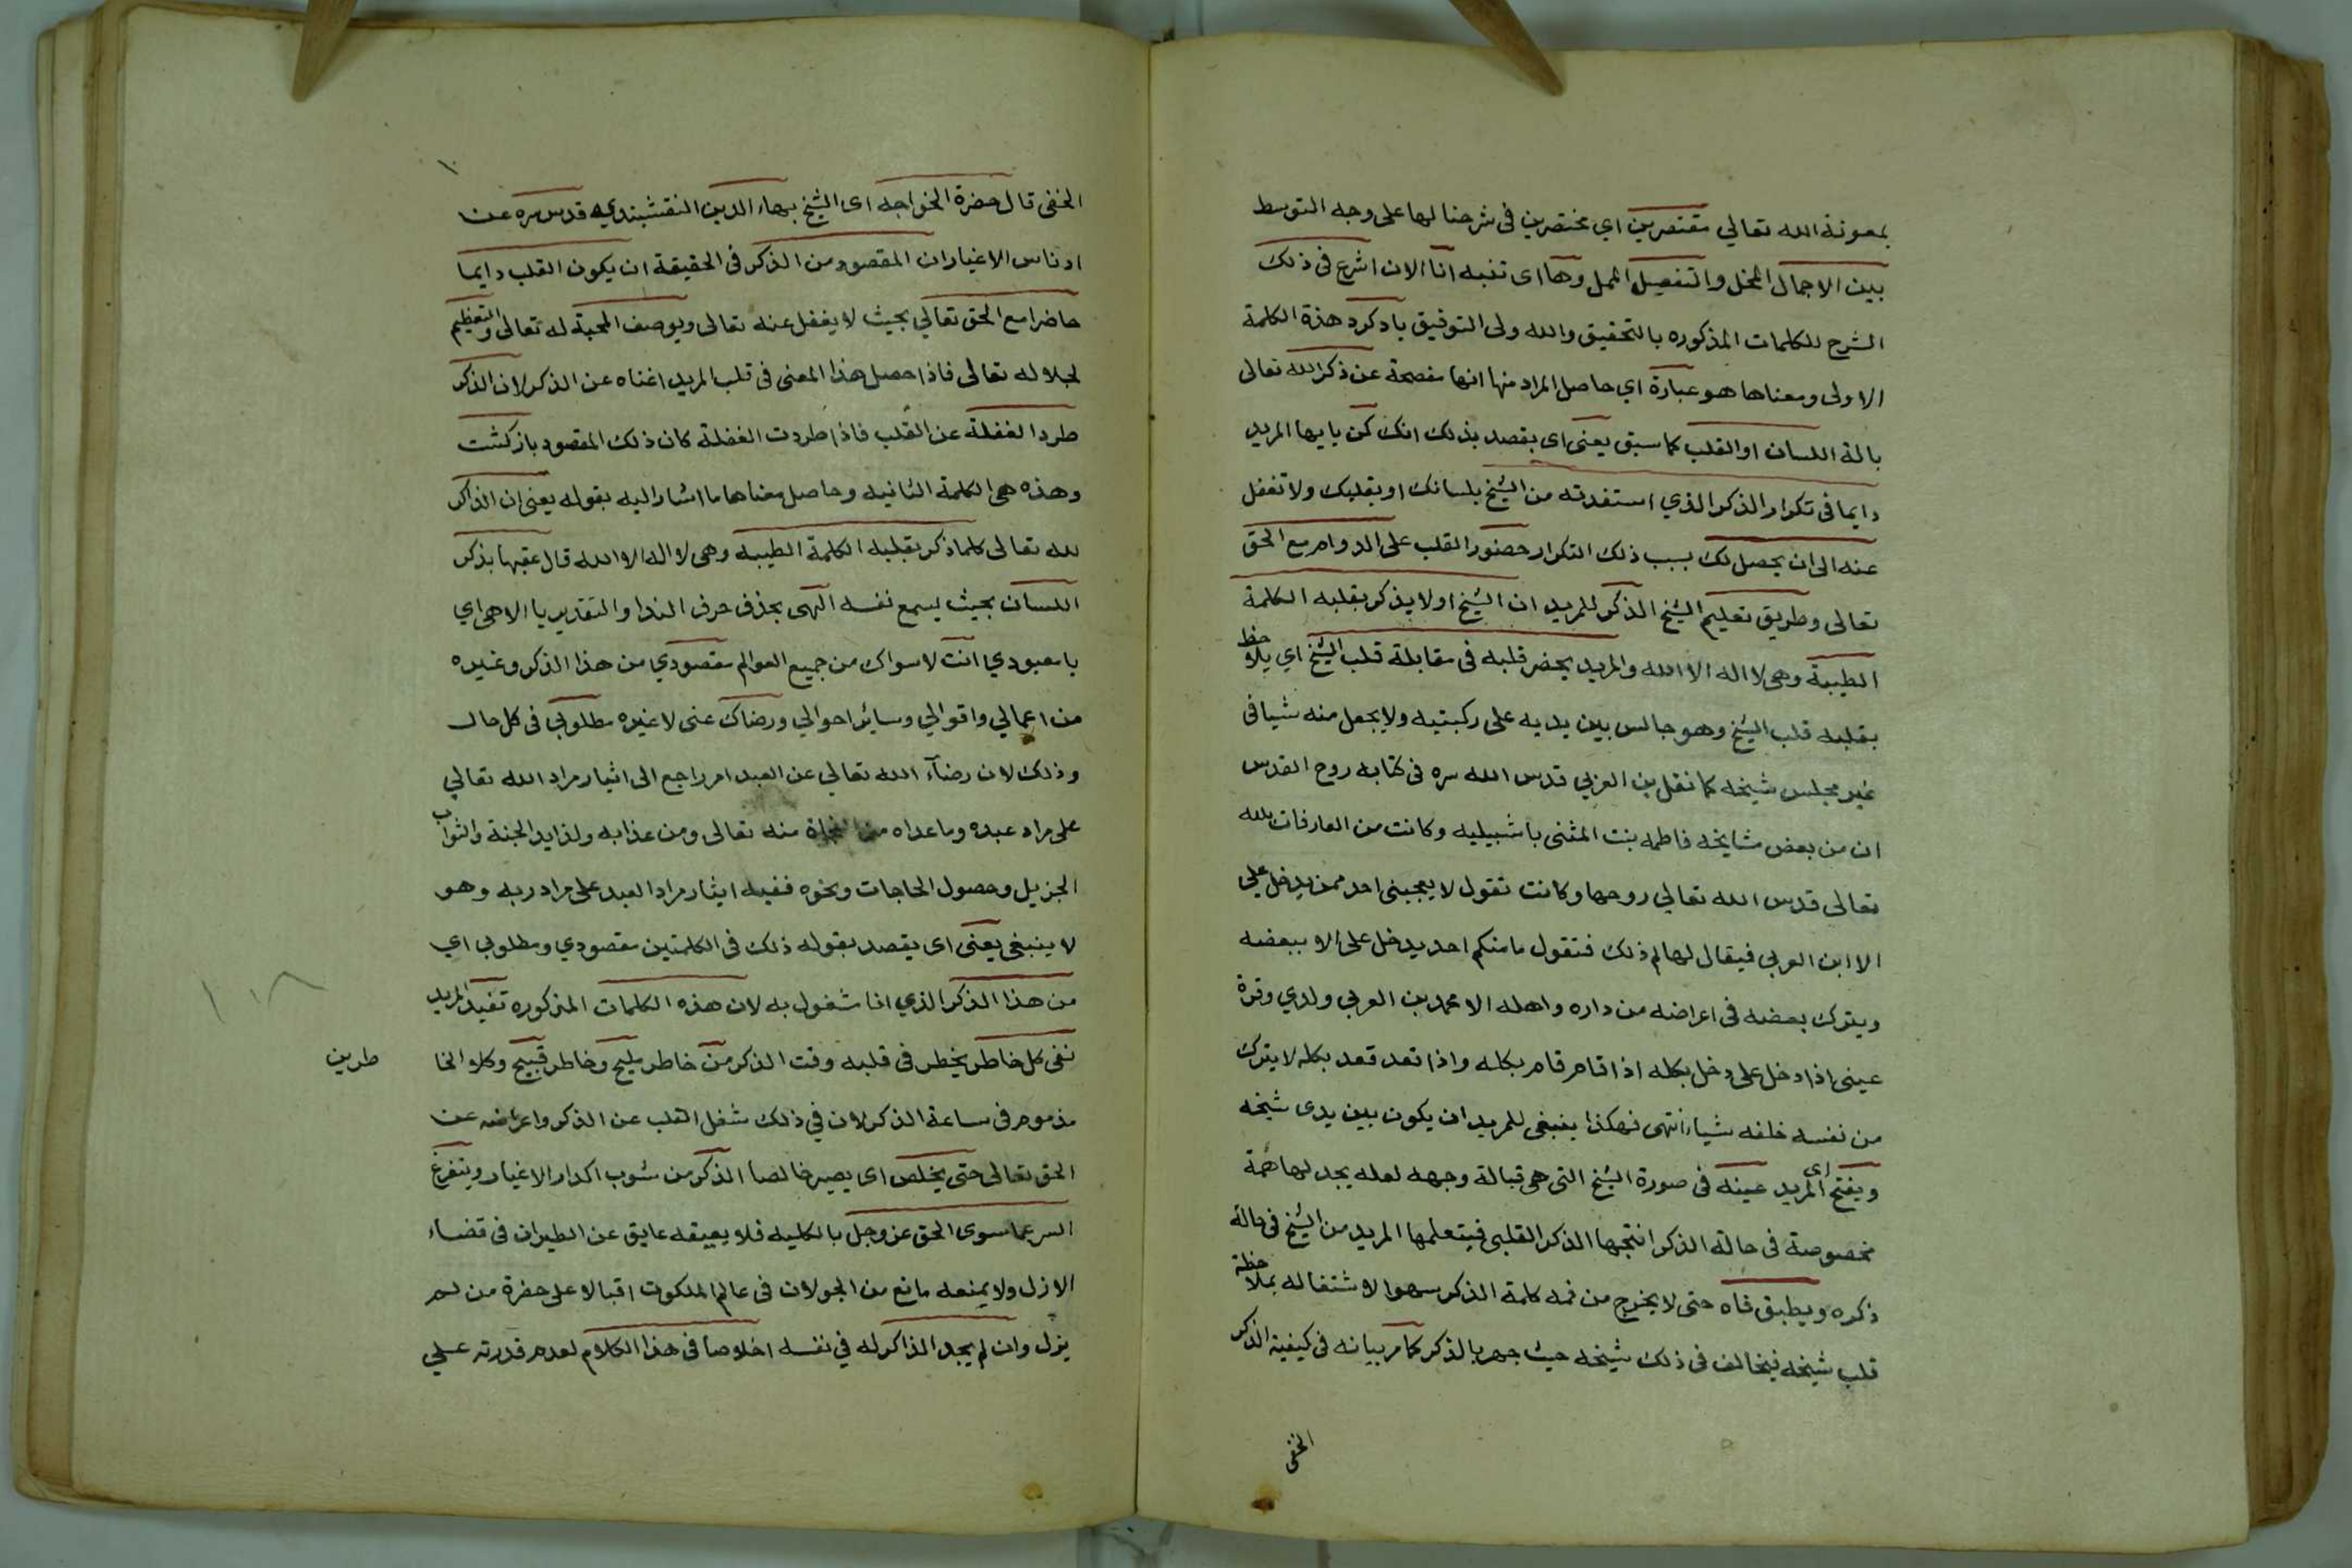 بمعونة الله تعالي مقتصرين اي مختصرين في شرحنا لها على وجه التوسط
بين الاجمال المخل والتفصيل الممل وها اى تنبه انا الان اشرع فى ذلك
الشرح للكلمات المذكوره بالتحقيق والله ولى التوفيق يادكرد هذة الكلمة
الاولى ومعناها هو عبارة اي حاصل المراد منها انها مفصحة عن ذكر الله تعالى
بالة اللسان او القلب كما سبق يعنى اى يقصد بذلك انك كن يايها المريد
دايما فى تكرار الذكر الذي استفدته من الشيخ بلسانك او بقلبك ولا تغفل
عنه الى ان يحصل لك بسبب ذلك التكرار حضور القلب على الدوام مع الحق
تعالى وطريق تعليم الشيخ الذكر للمريد ان الشيخ اولا يذكر بقلبه الكلمة
الطيبة وهى لا اله الا الله والمريد يحضر قلبه فى مقابلة قلب الشيخ اي يلاحظ
بقلبه قلب الشيخ وهو جالس بين يديه على ركبتيه ولا يجعل منه شيا فى
غير مجلس شيخه كما نقل بن العربي قدس الله سره فى كتابه روح القدس
ان من بعض مشايخه فاطمه بنت المثنى باشبيليه وكانت من العارفات بالله
تعالى قدس الله تعالي روحها وكانت تقول لا يعجبنى احد ممن يدخل علي
الا ابن العربي فيقال لها لم ذلك فتقول ما منكم احد يدخل على الا ببعضه
ويترك بعضه فى اعراضه من داره واهله الا محمد بن العربي ولدي وقرة
عينى اذا دخل على دخل بكله اذا قام قام بكله واذا قعد قعد بكله لا يترك
من نفسه خلفه شيا انتهى فهكذا ينبغى للمريد ان يكون بين يدى شيخه
ويفتح اى المريد عينه فى صورة الشيخ التى هى قبالة وجهه لعله يجد لها همة
مخصوصة فى حالة الذكر انتجها الذكر القلبى فيتعلمها المريد من الشيخ فى حالة
ذكره ويطبق فاه حتى لا يخرج من فمه كلمة الذكر سهوا لاشتغاله بملاحظة
قلب شيخه فيخالف فى ذلك شيخه حيث جهر بالذكر كما مر بيانه فى كيفية الذكر
الخفى
الخفى قال حضرة الخواجه اى الشيخ بهاء الدين النقشبندي قدس سره عن
ادناس الاغيار ان المقصود من الذكر فى الحقيقة ان يكون القلب دايما
حاضرا مع الحق تعالي بحيث لا يغفل عنه تعالى وبوصف المحبة له تعالى والتعظيم
لجلاله تعالى فاذا حصل هذا المعنى فى قلب المريد اغناه عن الذكر لان الذكر
طرد الغفلة عن القلب فاذا طردت الغفلة كان ذلك المقصود بازكشت
وهذه هى الكلمة الثانيه وحاصل معناها ما اشار اليه بقوله يعنى ان الذاكر
لله تعالى كلما ذكر بقلبه الكلمة الطيبه وهى لا اله الا الله قال عقبها بذكر
اللسان بحيث يسمع نفسه الهى بحذف حرف الندا والتقدير يا الاهى اي
يا معبودي انت لا سواك من جميع العوالم مقصودي من هذا الذكر وغيره
من اعمالي واقوالي وساير احوالي ورضاك عنى لا غيره مطلوبي فى كل حال
وذلك لان رضآء الله تعالي عن العبد امر راجع الى اثيار مراد الله تعالي
على مراد عبده وما عداه من النجاة منه تعالى ومن عذابه ولذايد الجنة والثواب
الجزيل وحصول الحاجات ونحوه ففيه ايثار مراد العبد على مراد ربه وهو
لا ينبغى يعنى اى يقصد بقوله ذلك فى الكلمتين مقصودي ومطلوبي اي
من هذا الذكر الذي انا شغول به لان هذه الكلمات المذكوره تفيد المريد
نفى كل خاطر يخطر فى قلبه وقت الذكر من خاطر مليح وخاطر قبيح وكلا الخا
طرين
مذموم فى ساعة الذكر لان في ذلك شغل القلب عن الذكر واعراضه عن
الحق تعالى حتى يخلص اى يصير خالصا الذكر من شوب اكدار الاغيار ويتفرغ
السر عما سوى الحق عز وجل بالكليه فلا يعيقه عايق عن الطيران فى فضاء
الازل ولا يمنعه مانع من الجولان فى عالم الملكوت اقبالا على حضرة من لم
يزل وان لم يجد الذاكر له في نفسه اخلاصا فى هذا الكلام لعدم قدرته علي